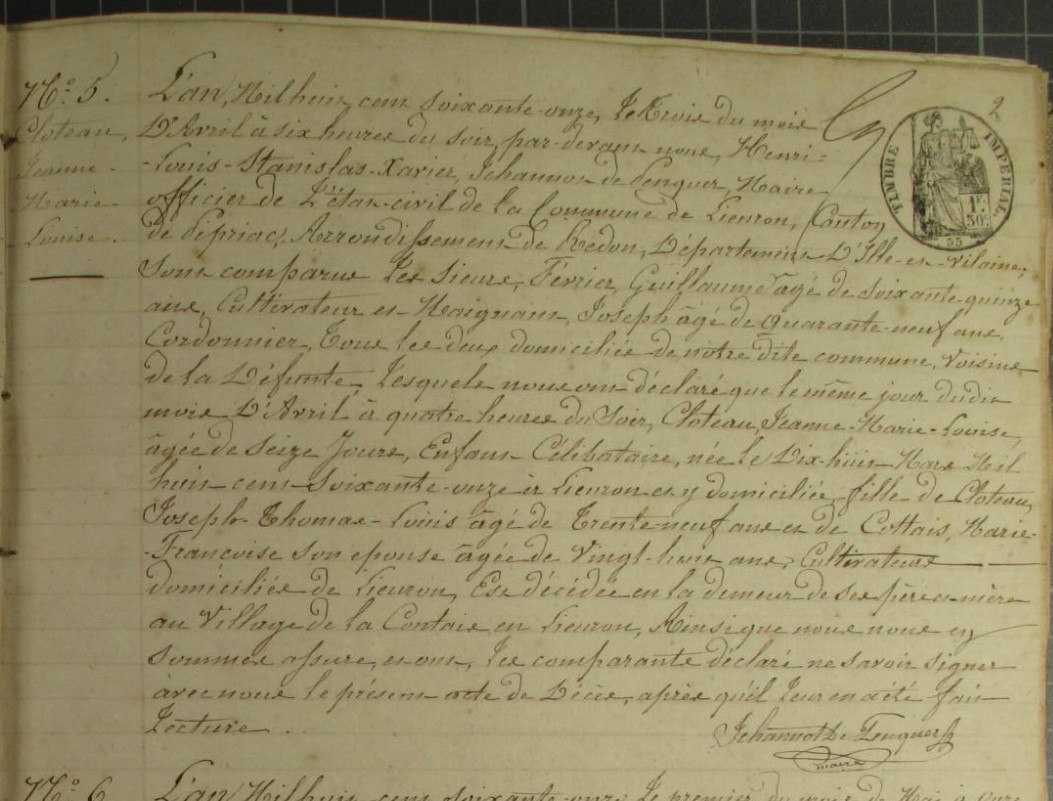 2
N.º 5.
Cloteau,
Jeanne-
Marie
Louise.
TIMBRE IMPÉRIAL
1F.
50C.
55
L'an, Mil huit cent soixante-onze, le trois du mois
D'Avril à six heures du soir, par-devant nous, Henri-
-Louis-Stanislas-Xavier, Jehannot de Penquer, Maire
officier de L'état-civil de la Commune de Lieuron, Canton
de Pipriac, Arrondissement de Redon, Département D'Ille-et-Vilaine,
sont comparus les sieurs, Février, Guillaume âgé de soixante-quinze
ans, Cultivateur et Maignant, Joseph âgé de quarante-neuf ans
Cordonnier, Tous les deux domiciliés de notre dite commune, Voisins
de la Défunte, lesquels nous ont déclaré que le même jour dudit
mois D'Avril à quatre heures du soir, Cloteau, Jeanne-Marie-Louise,
âgée de seize Jours, Enfant Célibataire, née le Dix-huit Mars Mil
huit-cent-soixante-onze à Lieuron et y domiciliée, fille de Cloteau,
Joseph-Thomas-Louis âgé de Trente-neuf ans et de Cottais, Marie-
-Francoise son epouse âgée de Vingt-huit ans, Cultivateurs
domiciliés de Lieuron, Est décédée en la demeur de ses père et mère
au Village de la Contaie en Lieuron, Ainsi que nous nous en
sommes assure, et ont, les comparants déclaré ne savoir signer
avec nous le présent acte de Décès, après qu'il leur en a été fait
Lecture.
Jehannot De Penquer
maire
N.º 6
L'an Mil huit cent soixante-onze le premier du mois de Mai à